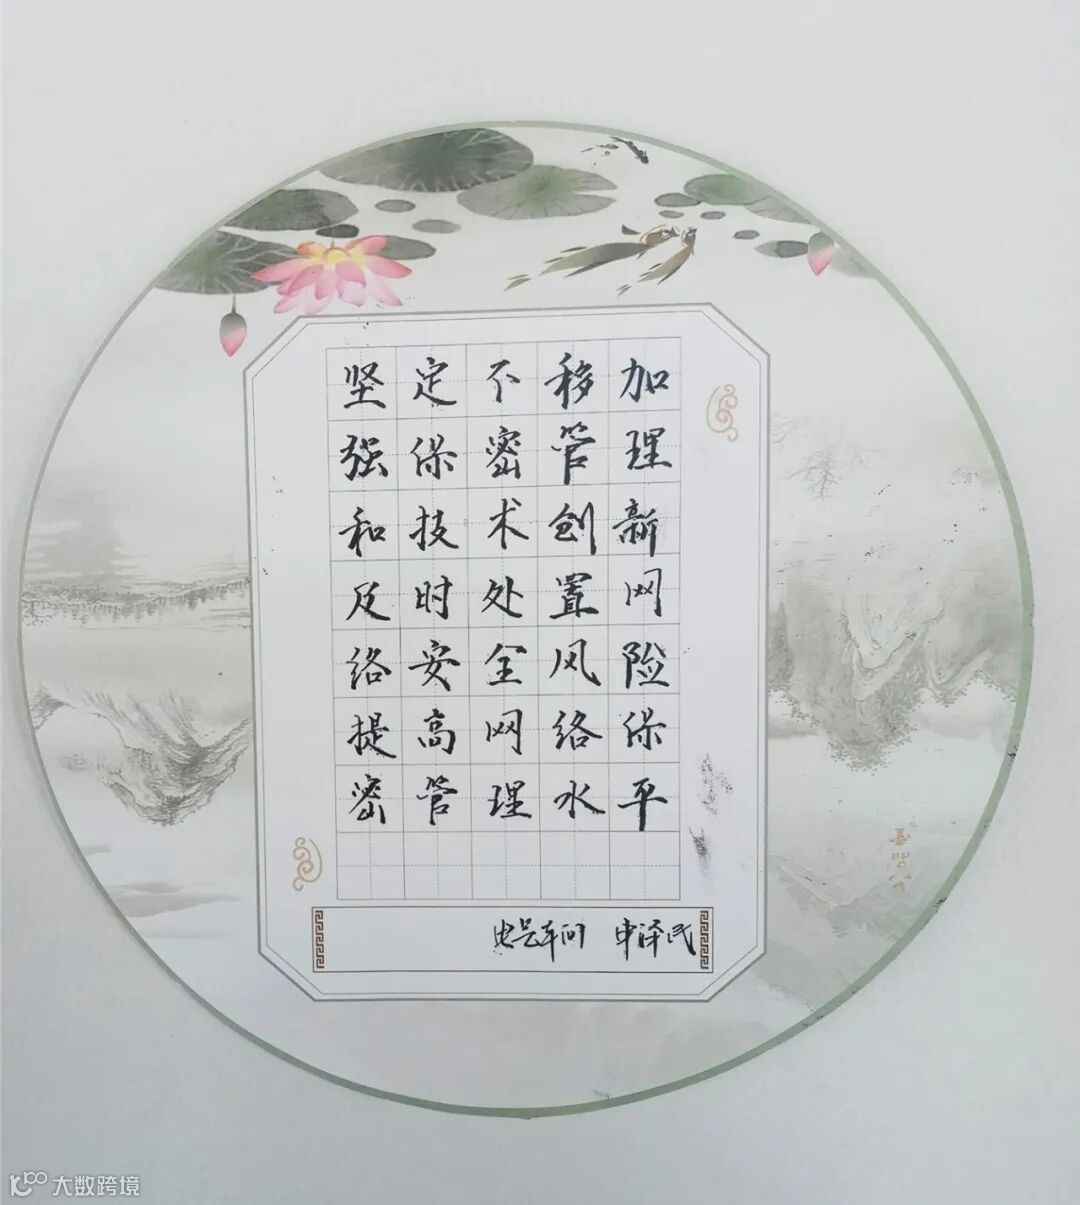 坚定不移加
强保密管理
和技术创新
及时处置网
络安全风险
提高网络保
密管理水平
车间 申泽民
大数跨境